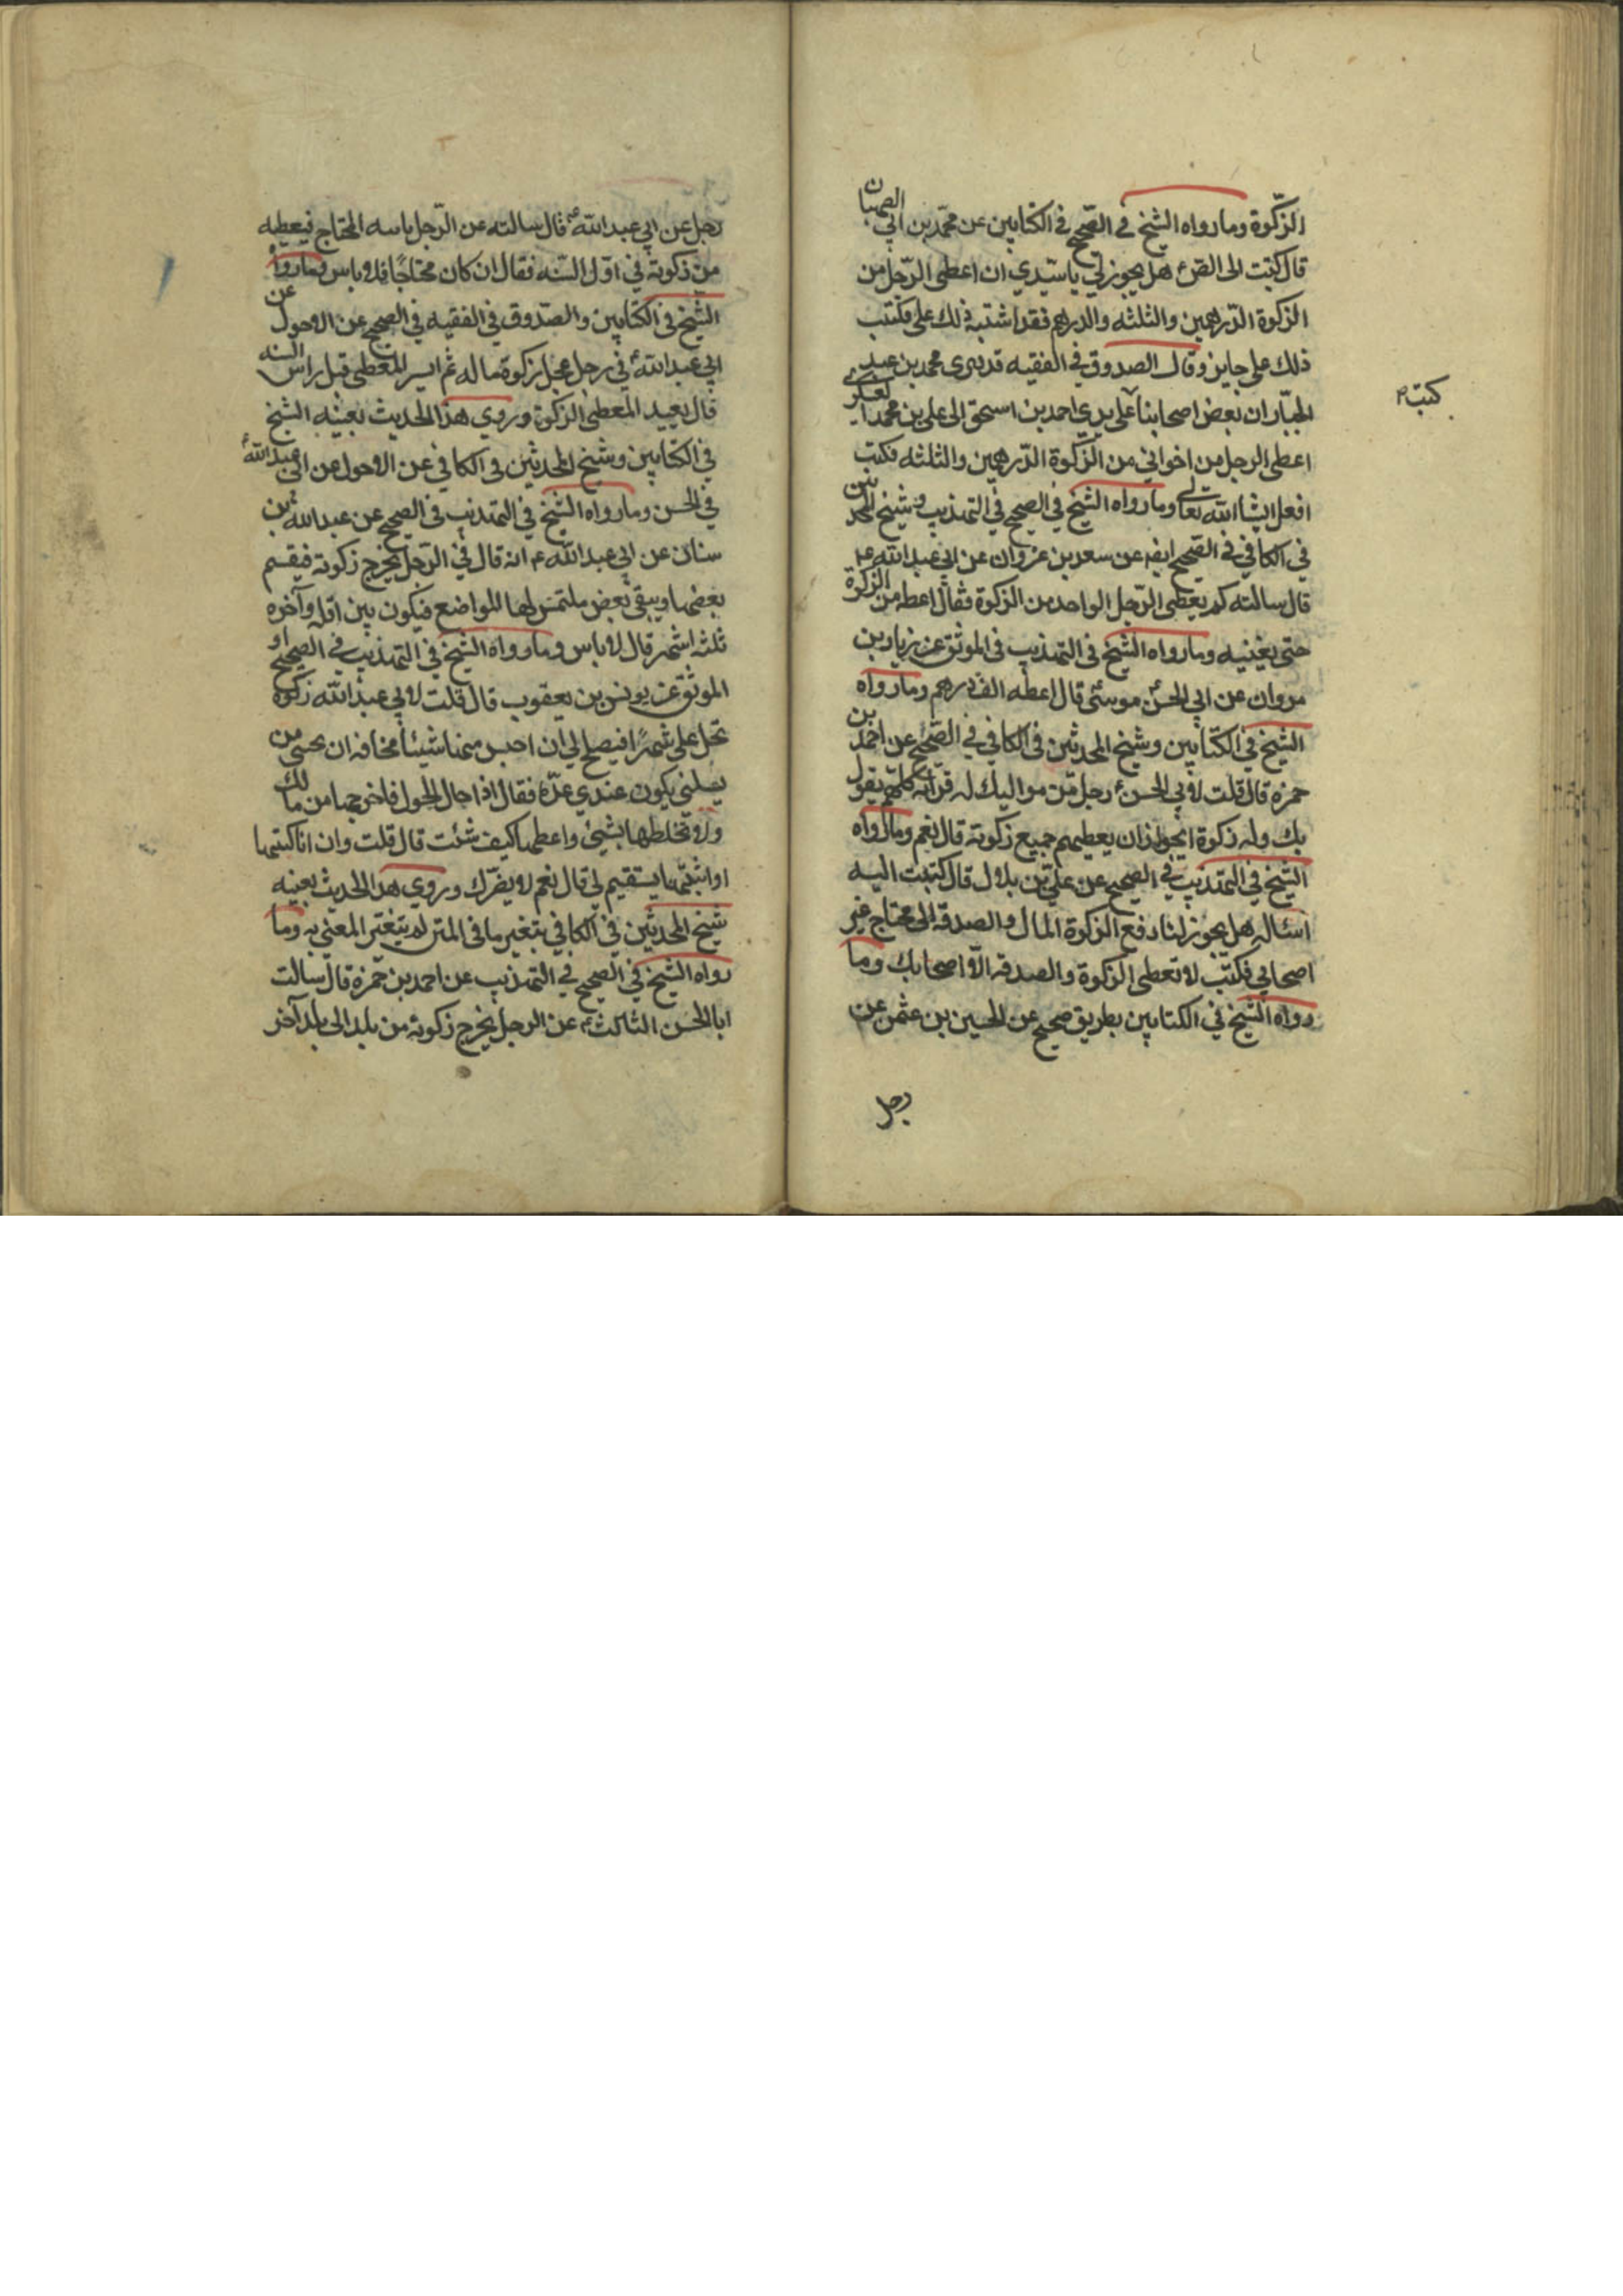 الزكوة وما رواه الشيخ في الصحيح في الكتابين عن محمد بن ابي الصهبان
قال كتبت الى الصء هل يجوز لي ياسيدي ان اعطى الرجل من
الزكوة الدرهمين والثلثه والدراهم فقد اشتبه ذلك علي فكتب
ذلك علي جايز وقال الصدوق في الفقيه قد روى محمد بن عبد
الجبار ان بعض اصحابنا على يدي احمد بن اسحق الى علي بن محمد العسكري
كتب
اعطى الرجل من اخواني من الزكوة الدرهمين والثلثه فكتب
افعل انشاالله تعالى وما رواه الشيخ في الصحيح في التهذيب وشيخ المحدثين
في الكافي في الصحيح ايضه عن سعد بن غزوان عن ابي عبد الله ع
قال سالته كم يعطى الرجل الواحد من الزكوة فقال اعطه من الزكوة
حتى يغنيه وما رواه الشيخ في التهذيب في الموثق عن زياد بن
مروان عن ابي الحسن موسى قال اعطه الف درهم وما رواه
الشيخ في الكتابين وشيخ المحدثين في الكافي في الصحيح عن احمد بن
حمزة قال قلت لابي الحسنء رجل من مواليك له قرابة كلهم يقول
بك وله زكوة ايجوز ان يعطيهم جميع زكوته قال نعم وما رواه
الشيخ في التهذيب في الصحيح عن علي بن بلال قال كتبت اليه
اسئاله هل يجوز لنا دفع الزكوة المال والصدقة الى محتاج غير
اصحابي فكتب لا تعطى الزكوة والصدقه الا اصحابك وما
رواه الشيخ في الكتابين بطريق صحيح عن الحسين بن عثمن عن
رجل
رجل عن ابي عبد الله ع قال سالته عن الرجل ياتيه المحتاج فيعطيه
من زكوته في اول السنه فقال ان كان محتاجا فلا باس وما رواه
الشيخ في الكتابين والصدوق في الفقيه في الصحيح عن الاحول عن
ابي عبد اللهء في رجل عجل زكوة ماله ثم ايسر المعطى قبل راس السنه
قال يعيد المعطى الزكوة وروي هذا الحديث بعينه الشيخ
في الكتابين وشيخ المحدثين في الكافي عن الاحول عن ابي عبد اللهء
في الحسن وما رواه الشيخ في التهذيب في الصحيح عن عبد الله بن
سنان عن ابي عبد الله ع انه قال في الرجل يخرج زكوته فيقسم
بعضها ويبقى بعض ملتمس لها المواضع فيكون بين اوله وآخره
ثلثه اشهر قال لا باس وما رواه الشيخ في التهذيب في الصحيح او
الموثق عن يونس بن يعقوب قال قلت لابي عبد الله زكوة
تحل علي شهرا فيصلح لي ان احبس منها شيئا مخافه ان يجئي من
يسلني يكون عندي عدة فقال اذا حال الحول فاخرجها من مالك
ولا تخلطها بشيئ واعطها كيف شئت قال قلت وان انا كتبتها
او اثبتها يستقيم لي قال نعم لا يضرك وروي هذا الحديث بعينه
شيخ المحدثين في الكافي بتغير ما في المتن لم يتغير المعنى به وما
رواه الشيخ في الصحيح في التهذيب عن احمد بن حمزة قال سالت
ابا الحسن الثالثء عن الرجل يخرج زكوته من بلد الى بلد آخر